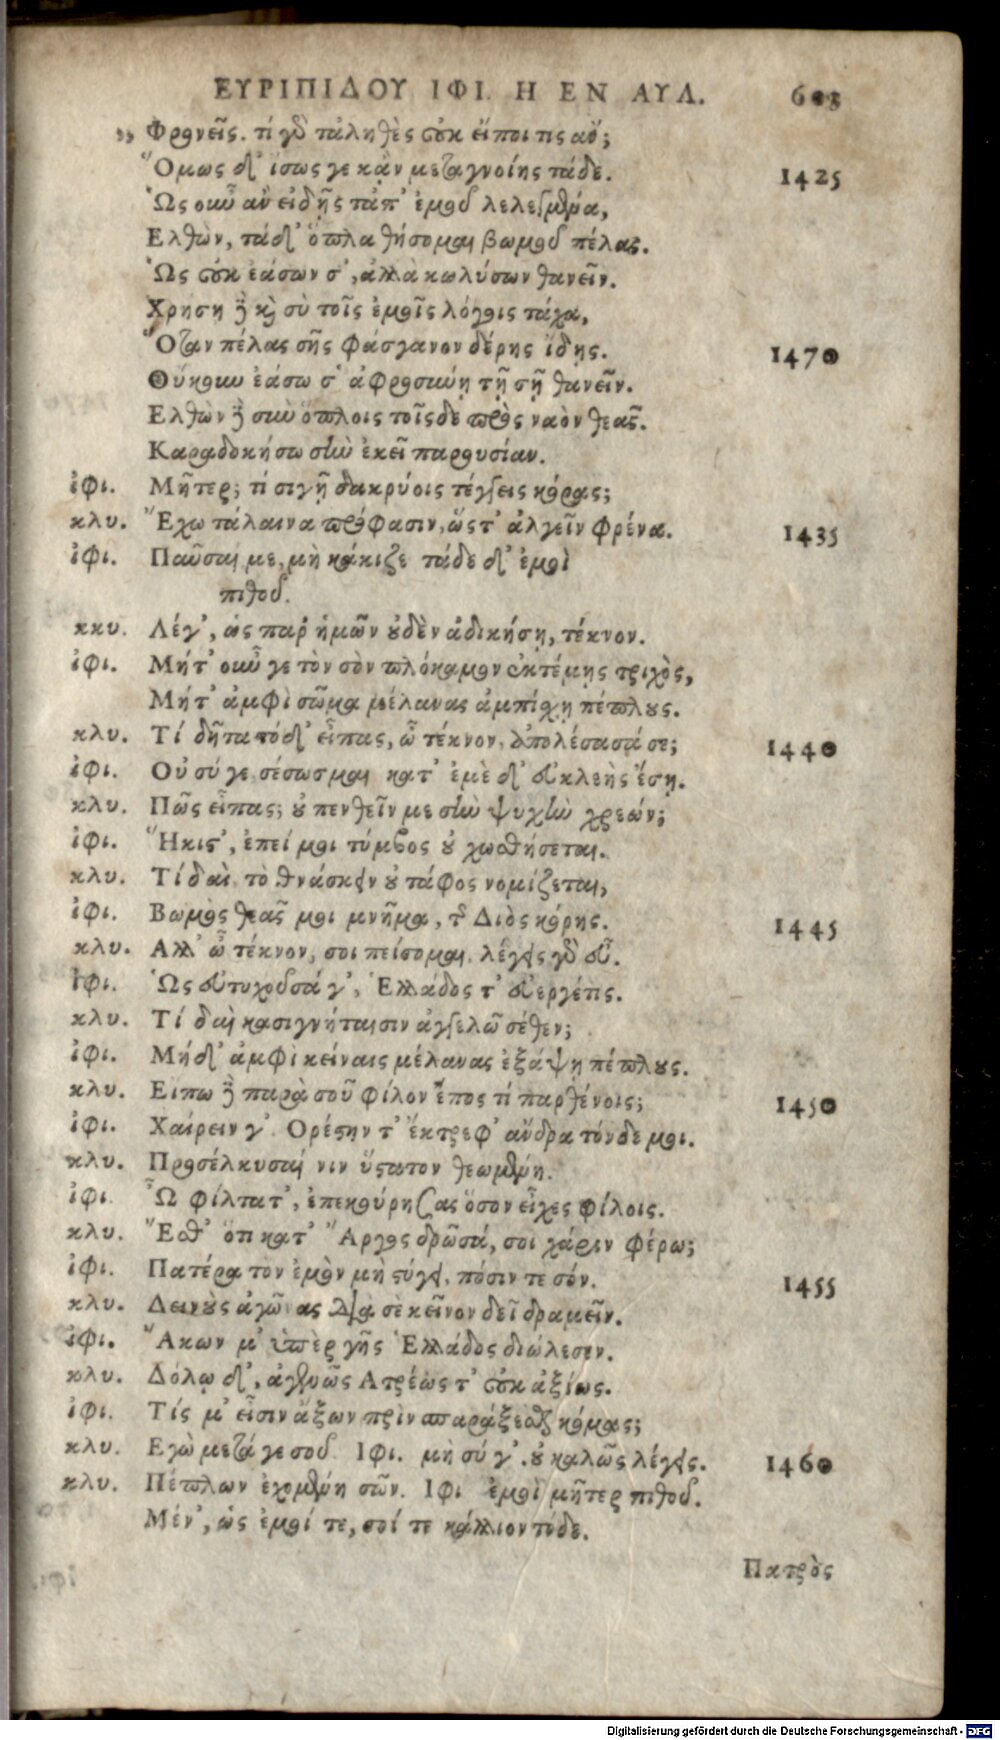 ΕΥΡΙΠΙΔΟΥ ΙΦΙ. Η ΕΝ ΑΥΛ. 603
,, Φρονεῖς. τί γὸ τἀληθὲς οὐκ εἴποι τις ἄν;
Ὅμως δ' ἴσως γε κἂν μεταγνοίης τάδε. 1425
Ὡς οὖν ἂν εἰδῇς τἀπ' ἐμοῦ λελεγμένα,
Ελθὼν, τάδ' ὅπλα θήσομαι βωμοῦ πέλας.
Ὡς οὐκ ἐάσων σ', ἀλλὰ κωλύσων θανεῖν.
Χρήση δὲ καὶ σὺ τοῖς ἐμοῖς λόγοις τάχα,
Ὅταν πέλας σῆς φάσγανον δέρης ἴδης. 1470
Οὔκουν ἐάσω σ' ἀφροσύνῃ τῇ σῇ θανεῖν.
Ελθὼν δὲ σὺν ὅπλοις τοῖςδε πρὸς ναὸν θεᾶς.
Καραδοκήσω σὴν ἐκεῖ παρουσίαν.
ἰφι. Μῆτερ; τί σιγῇ δακρύοις τέγγεις κόρας;
κλυ. Ἔχω τάλαινα πρόφασιν, ὥςτ' ἀλγεῖν φρένα. 1435
ἰφι. Παῦσαί με, μὴ κάκιζε τάδε δ' ἐμοὶ
πιθοῦ.
κκυ. Λέγ', ὡς παρ' ἡμῶν οὐδὲν ἀδικήση, τέκνον.
ἰφι. Μήτ' οὖν γε τὸν σὸν πλόκαμον ἐκτέμης τριχὸς,
Μήτ' ἀμφὶ σῶμα μέλανας ἀμπίσχῃ πέπλους.
κλυ. Τί δῆτα τόδ' εἶπας, ὦ τέκνον, ἀπολέσασά σε; 1440
ἰφι. Οὐ σύ γε. σέσωσμαι κατ' ἐμὲ δ' εὐκλεὴς ἔση.
κλυ. Πῶς εἶπας; οὐ πενθεῖν με σὴν ψυχὴν χρεών;
ἰφι. Ἥκιστ', ἐπεί μοι τύμβος οὐ χωσθήσεται.
κλυ. Τί δαὶ τὸ θνάσκειν οὐ τάφος νομίζεται,
ἰφι. Βωμὸς θεᾶς μοι μνῆμα, τῆς Διὸς κόρης. 1445
κλυ. Ἀλλ' ὦ τέκνον, σοι πείσομαι. λέγεις γὸ εὖ.
ἰφι. Ὡς εὐτυχοῦσά γ', Ἑλλάδος τ' εὐεργέτις.
κλυ. Τί δαὶ κασιγνήταισιν ἀγγελῶ σέθεν;
ἰφι. Μήδ' ἀμφὶ κείναις μέλανας ἐξάψῃ πέπλους.
κλυ. Εἴπω δὲ παρὰ σοῦ φίλον ἔπος τί παρθένοις; 1450
ἰφι. Χαίρειν γ'. Ορέστην τ' ἔκτρεφ' ἄνδρα τόνδε μοι.
κλυ. Προσέλκυσαί νιν ὕστατον θεωμένη.
ἰφι. Ὦ φίλτατ', ἐπεκούρησας ὅσον εἶχες φίλοις.
κλυ. Ἔσθ' ὅτι κατ' Ἄργος δρῶσά, σοι χάριν φέρω;
ἰφι. Πατέρα τὸν ἐμὸν μὴ στύγει, πόσιν τε σόν. 1455
κλυ. Δεινοὺς ἀγῶνας διὰ σὲ κεῖνον δεῖ δραμεῖν.
ἰφι. Ἄκων μ' ὑπὲρ γῆς Ἑλλάδος διώλεσεν.
κλυ. Δόλῳ δ', ἀγεννῶς Ατρέως τ' οὐκ ἀξίως.
ἰφι. Τίς μ' εἶσιν ἄξων πρὶν σπαράξεσθαι κόμας;
κλυ. Εγὼ μετά γε σοῦ. Ιφι. μὴ σύ γ'. οὐ καλῶς λέγεις. 1460
κλυ. Πέπλων ἐχομένη σῶν. Ιφι ἐμοὶ μῆτερ πιθοῦ.
Μέν', ὡς ἐμοί τε, σοί τε κάλλιον τόδε.
Πατρὸς
Digitalisierung gefördert durch die Deutsche Forschungsgemeinschaft - DFG